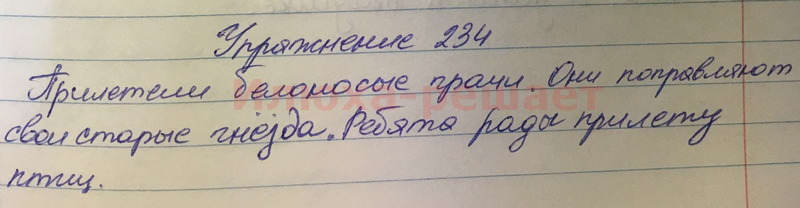 Упражнение 234
Прилетели белоносые грачи. Они поправляют
свои старые гнёзда. Ребята рады прилету
птиц.
Илюха-решает